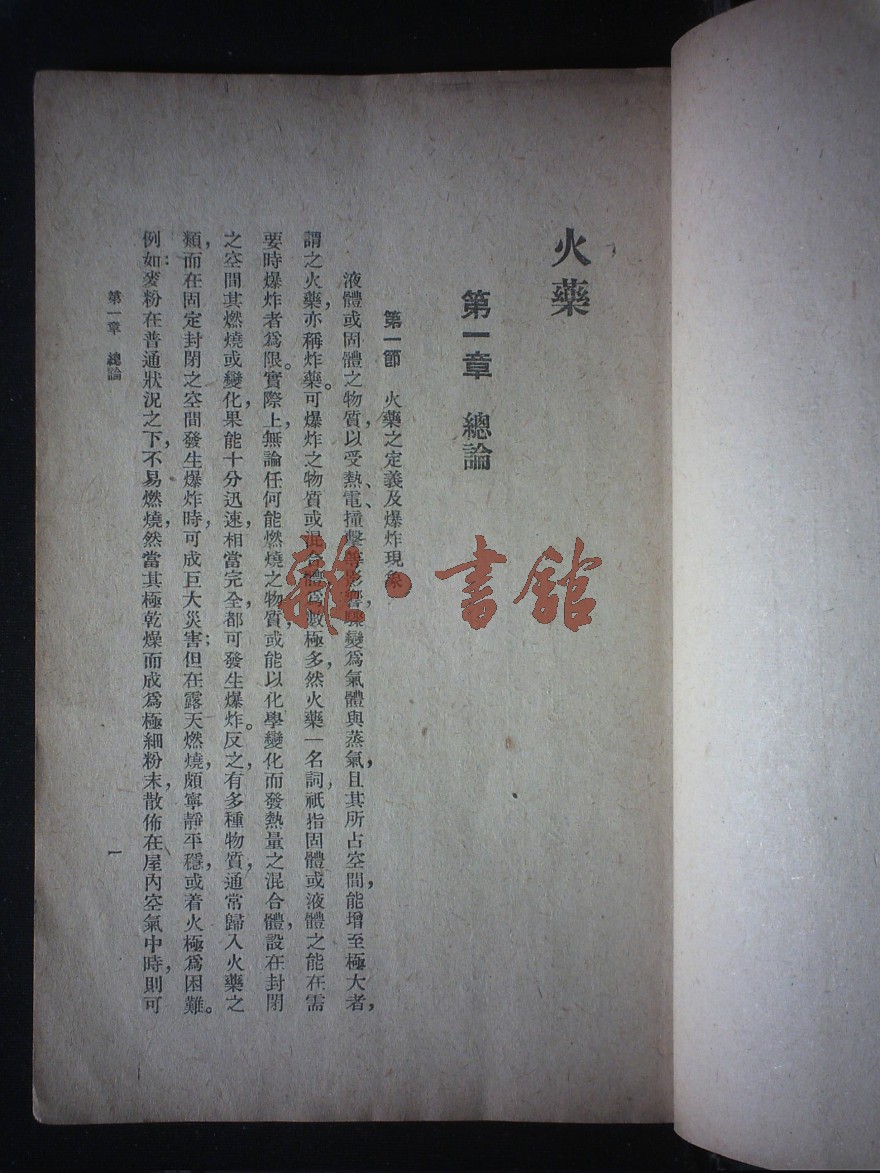 火藥
第一章　總論
第一節　火藥之定義及爆炸現象
液體或固體之物質，以受熱、電、撞擊等影響，驟變爲氣體與蒸氣，且其所占空間，能增至極大者，
謂之火藥，亦稱炸藥。可爆炸之物質或混合體爲數極多，然火藥一名詞，祇指固體或液體之能在需
要時爆炸者爲限。實際上，無論任何能燃燒之物質，或能以化學變化而發熱量之混合體，設在封閉
之空間其燃燒或變化，果能十分迅速，相當完全，都可發生爆炸。反之，有多種物質，通常歸入火藥之
類，而在固定封閉之空間發生爆炸時，可成巨大災害；但在露天燃燒，頗寧靜平穩，或着火極爲困難。
例如：麥粉在普通狀況之下，不易燃燒，然當其極乾燥而成爲極細粉末，散佈在屋內空氣中時，則可
第一章　總論
一
雜·書館